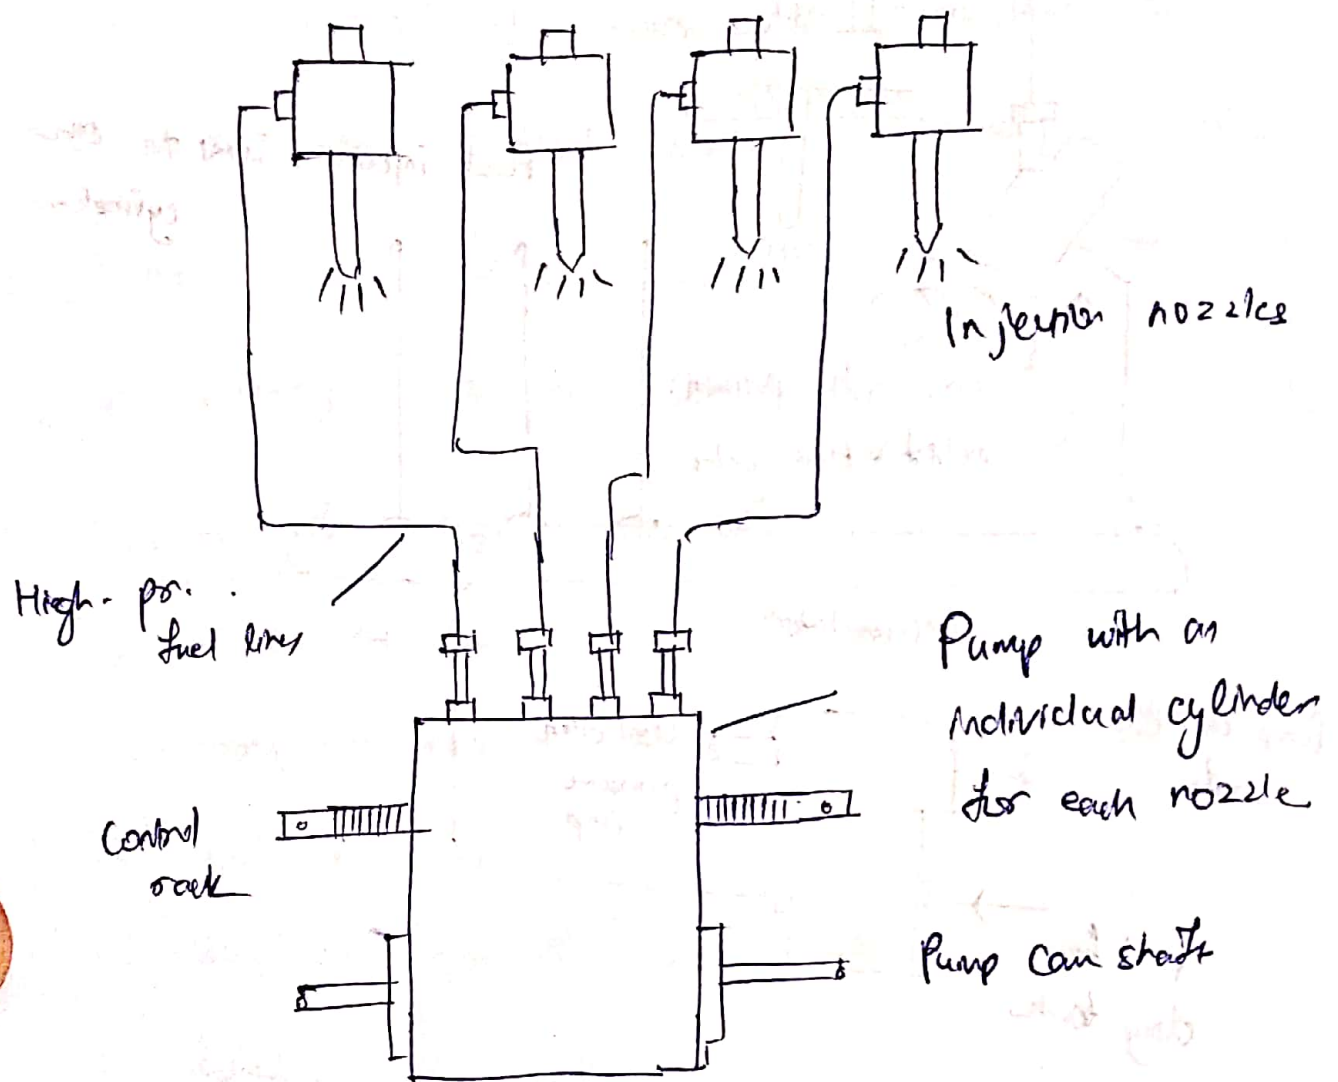 Injection nozzles
High-pr.
fuel lines
Pump with an
individual cylinder
for each nozzle
Control
rack
Pump cam shaft